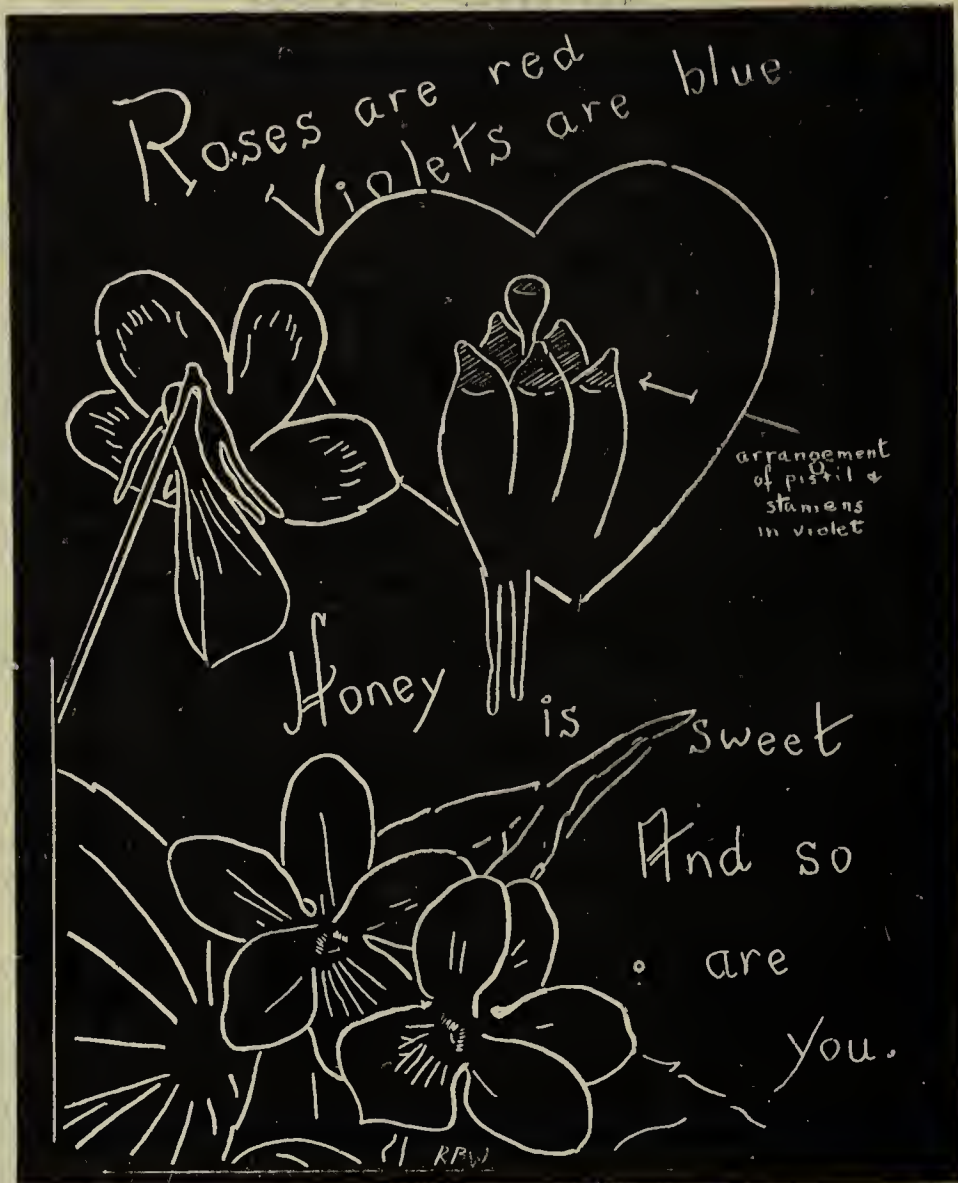 Roses are red
Violets are blue
arrangement
of pistil &
stamens
in violet
Honey is sweet
And so
are
you.
RBW